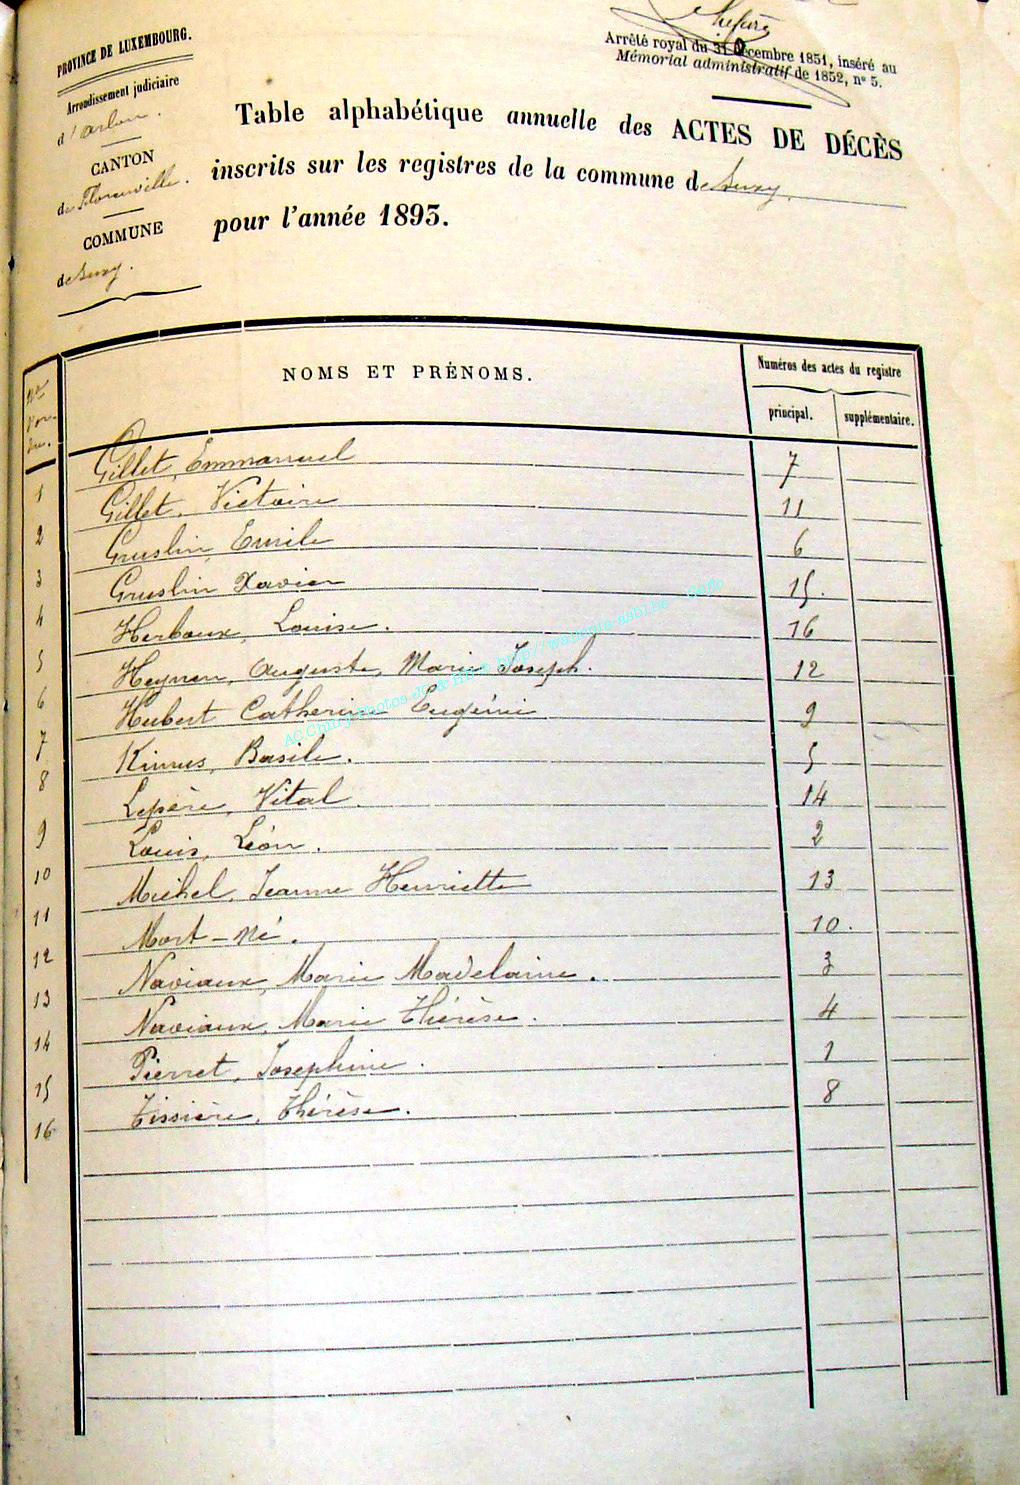 PROVINCE DE LUXEMBOURG.
Arrondissement judiciaire
d'Arlon.
CANTON
de Florenville.
COMMUNE
de Suxy.
Arrêté royal du 31 Décembre 1851, inséré au
Mémorial administratif de 1852, nº 5.
Table alphabétique annuelle des ACTES DE DÉCÈS
inscrits sur les registres de la commune de Suxy.
pour l'année 1893.
NOMS ET PRÉNOMS.
Numéros des actes du registre
principal. supplémentaire.
1 Gillet, Emmanuel 7
2 Gillet, Victoire 11
3 Gruslin, Emile 6
4 Gruslin Xavier 15.
5 Herboux, Louise. 16
6 Heynen, Auguste, Marie Joseph. 12
7 Hubert Catherine Eugénie 9
8 Kimus, Basile. 5
9 Lepère, Vital. 14
10 Louis, Léon. 2
11 Michel, Jeanne Henriette 13
12 Mort-né. 10.
13 Naviaux, Marie Madelaine. 3
14 Naviaux, Marie Thérèse. 4
15 Pierret, Josephine. 1
16 Tissière, Thérèse. 8